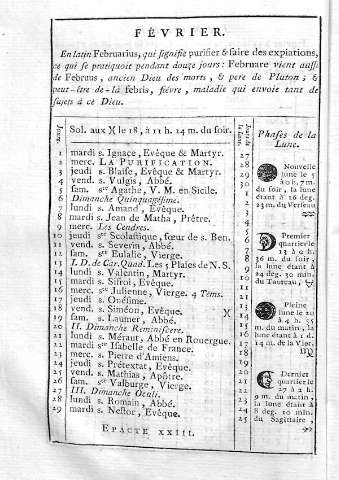 FÉVRIER.
En latin Februarius, qui signifie purifier & faire des expiations,
ce qui se pratiquoit pendant douze jours: Februare vient aussi
de Februus, ancien Dieu des morts, & pere de Pluton; &
peut-être de-là febris, fiévre, maladie qui envoie tant de
sujets à ce Dieu.
Sol. aux X le 18, à 11 h. 24 m. du soir.
1 mardi s. Ignace, Evêque & Martyr.
2 merc. LA PURIFICATION.
3 jeudi s. Blaise, Evêque & Martyr.
4 vend. s. Vulgis, Abbé.
5 sam. ste Agathe, V. M. en Sicile.
6 Dimanche Quinquagésime.
7 lundi s. Amand, Evêque.
8 mardi s. Jean de Matha, Prêtre.
9 merc. Les Cendres.
10 jeudi ste Scolastique, sœur de s. Ben.
11 vend. s. Severin, Abbé.
12 sam. ste Eulalie, Vierge.
13 I. D. de Car. Quad. Les 5 Plaies de N. S.
14 lundi s. Valentin, Martyr.
15 mardi s. Sifroi, Evêque.
16 merc. ste Julienne, Vierge. 4 Tems.
17 jeudi s. Onésime.
18 vend. s. Siméon, Evêque. X
19 sam. s. Launer, Abbé.
20 II. Dimanche Reminiscere.
21 lundi s. Méraut, Abbé en Rouergue.
22 mardi ste Isabelle de France.
23 merc. s. Pierre d'Amiens.
24 jeudi s. Prétextat, Evêque.
25 vend. s. Mathias, Apôtre.
26 sam. ste Valburge, Vierge.
27 III. Dimanche Oculi.
28 lundi s. Romain, Abbé.
29 mardi s. Nestor, Evêque.
EPACTE XXIII.
27
28
29
30
1
2
3
4
5
6
7
8
9
10
11
12
13
14
15
16
17
18
19
20
21
22
23
24
25
Phases de la
Lune.
Nouvelle
lune le 5
à 0 h. 7 m.
du soir, la lune
étant à 16 deg.
23 m. du Verseau
Premier
quartier le
13 à 0 h.
36 m. du soir,
la lune étant à
24 deg. 30 min.
du Taureau,
Pleine
lune le 20
à 4 h. 55
m. du matin, la
lune étant à 1 d.
14 m. de la Vier.
Dernier
quartier le
27 à 2 h.
9 m. du matin,
la lune étant à
8 deg. 10 min.
du Sagittaire,